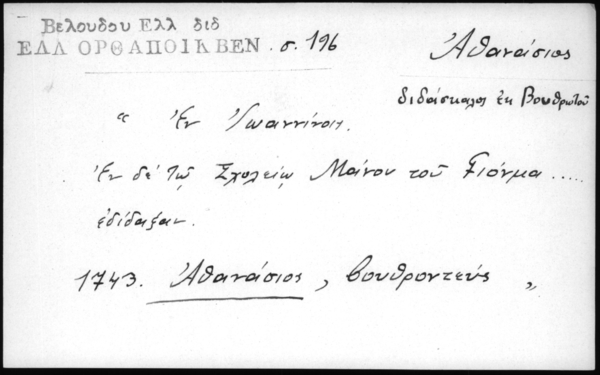 Βελουδου Ελλ διδ
ΕΛΛ ΟΡΘΑΠΟΙΚ ΒΕΝ . σ. 196
Ἀθανάσιος
διδάσκαλος ἐκ Βουθρωτοῦ
“ Ἐν Ἰωαννίνοις.
Ἐν δὲ τῷ Σχολείῳ Μάνου τοῦ Γιόνμα .....
ἐδίδαξαν.
1743. Ἀθανάσιος, βουθροντεύς „